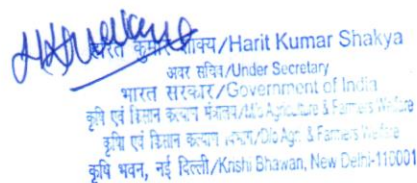 कुमार शाक्य/Harit Kumar Shakya
अवर सचिव/Under Secretary
भारत सरकार/Government of India
कृषि एवं किसान कल्याण मंत्रालय/M/o Agriculture & Farmers Welfare
कृषि एवं किसान कल्याण विभाग/D/o Agri. & Farmers Welfare
कृषि भवन, नई दिल्ली/Krishi Bhawan, New Delhi-110001